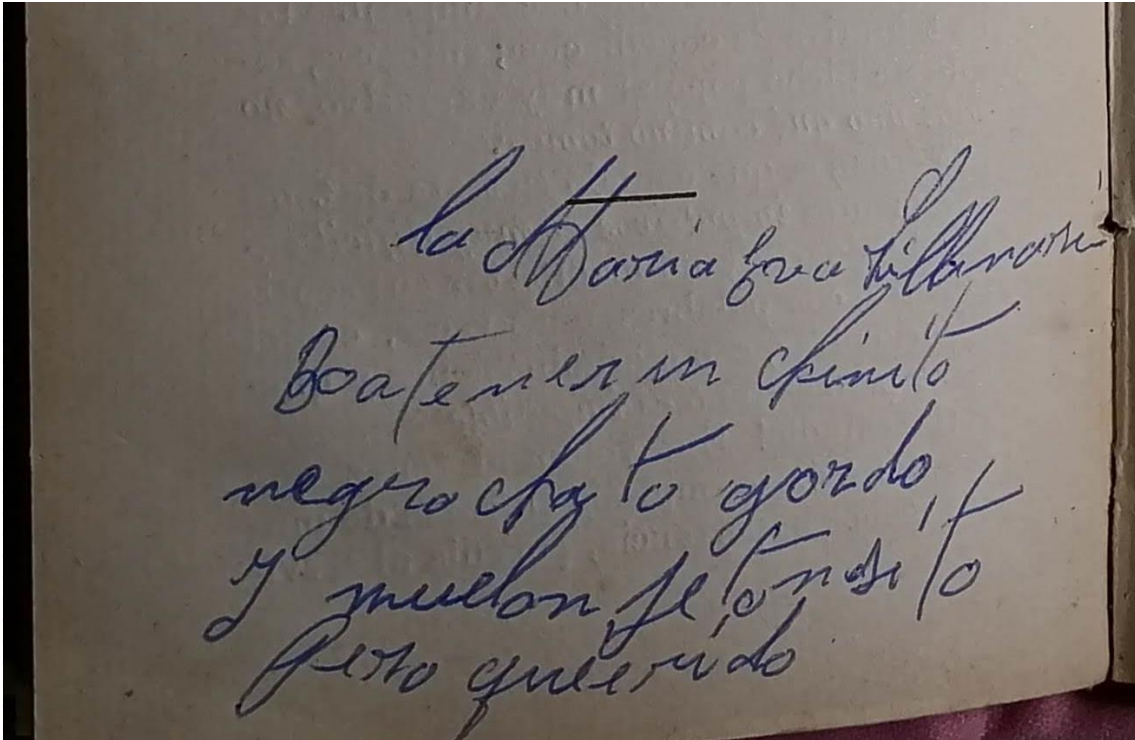 la Maria Eva Villamari
Boa tener un chinito
negro chato gordo
y muelon jetonsito
Pero querido